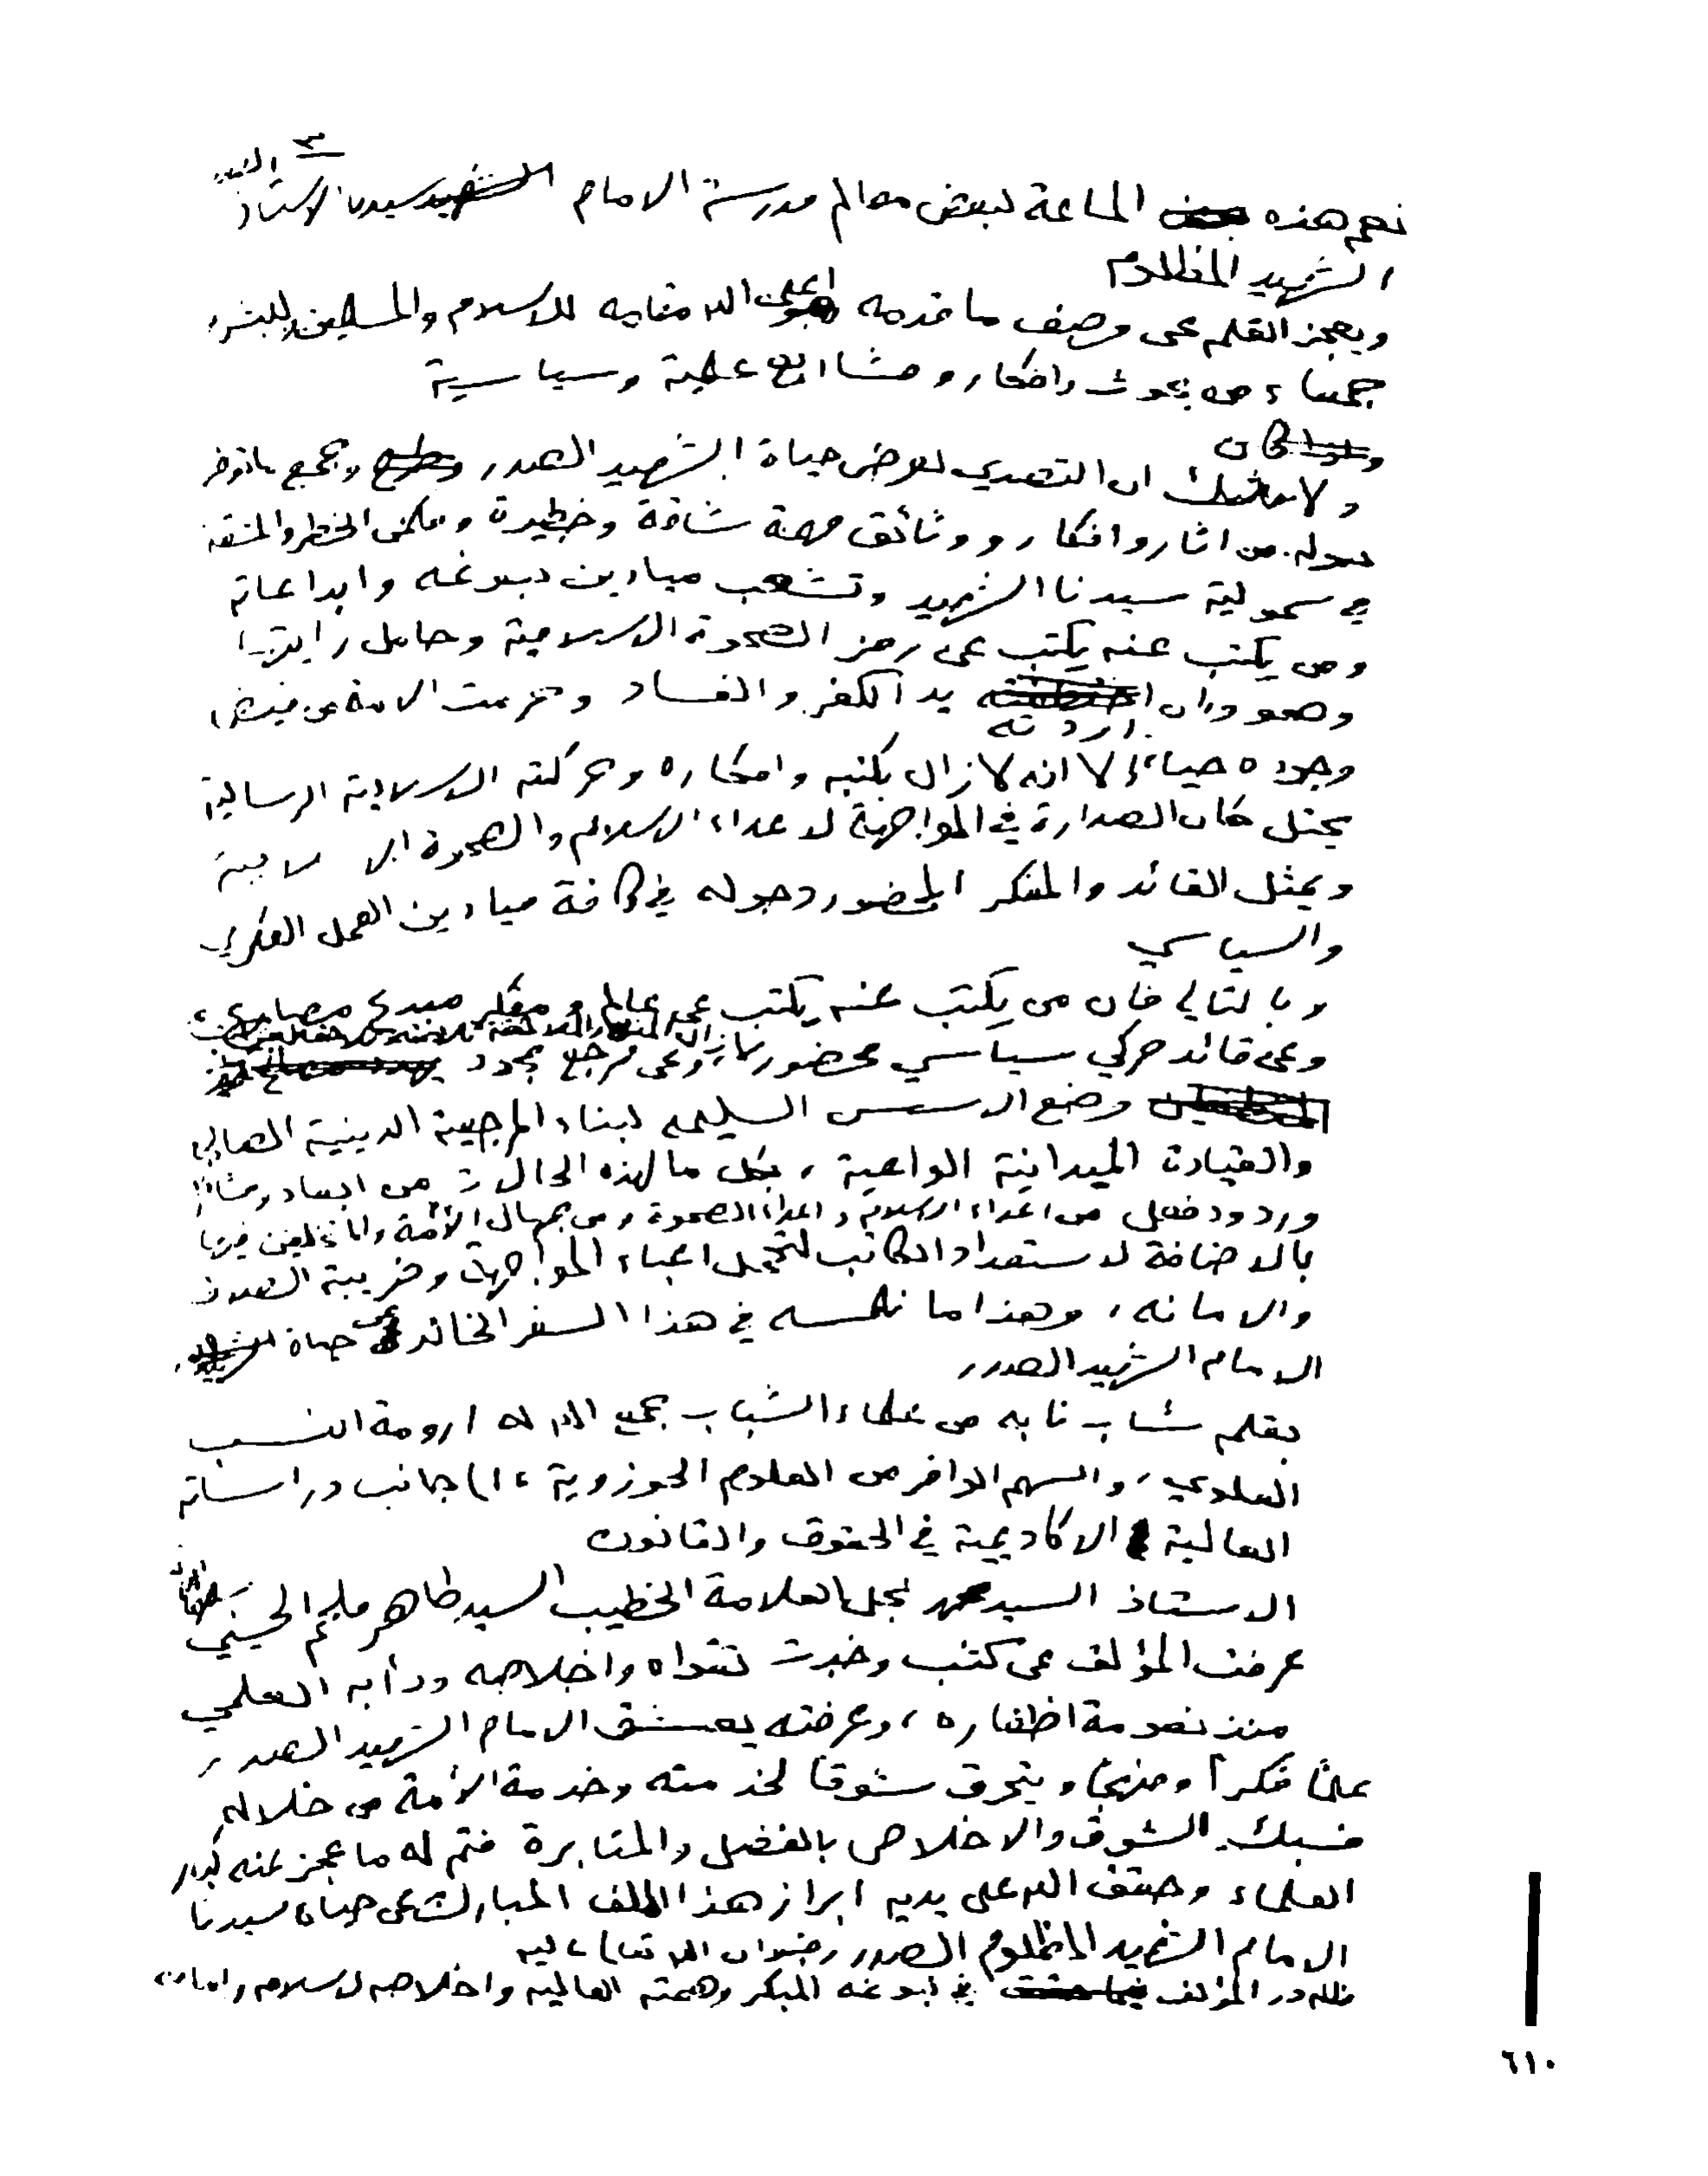 ٣
نعم هذه الماعة لبعض معالم مدرسة الامام سيدنا الاستاذ
الشهيد المظلوم
ويعجز القلم عن وصف ما قدمه اعلى الله مقامه للاسلام والمسلمين وللبشرية
جمعاء من بحوث وافكار ومشاريع علمية وسياسية
ولا شك ان التصدي لعرض حياة الشهيد الصدر وجمع ما توفر
حوله من اثار وافكار ووثائق مهمة شاقة وخطيرة ويمكن الخطر والمشقة
في شمولية سيدنا الشهيد وتشعب ميادين نبوغه وابداعاته
ومن يكتب عنه يكتب عن رمز الصحوة الاسلامية وحامل رايتها
وهو وان اردته يد الكفر والفساد وحرمت الامة من فيض
وجوده حياً، الا انه لا زال بكتبه وافكاره وحركته الاسلامية الرسالية
يحتل مكان الصدارة في المواجهة لاعداء الاسلام والصحوة الاسلامية
ويمثل القائد والمفكر الحضور وجوله في كافة ميادين العمل الفكري
والسياسي
وبالتالي فان من يكتب عنه يكتب عن عالم ومفكر مبدع
وعن قائد حركي سياسي محضور وعن مرجع مجدد
وضع الاسس السليمه لبناء المرجعية الدينية الصالحة
والقيادة الميدانية الواعية، بكل ما لهذه الحالة من ابعاد
وردود فعل من اعداء الاسلام واعداء الصحوة ومن جهال الأمة والمتخلفين فيها
بالاضافة لاستعداد الكاتب لتحمل اعباء المواجهة وضريبة الصدق
والامانه، وهذا ما نلمسه في هذا السفر الخالد عن حياة
الامام الشهيد الصدر
بقلم شاب نابه من علماء الشباب جمع الله له ارومة النسب
العلوي، والسهم الوافر من العلوم الحوزوية، الى جانب دراساته
العالية الاكاديمية في الحقوق والقانون
الاستاذ السيد محمد نجل العلامة الخطيب السيد طاهر ملحم الحسيني
عرفت المؤلف عن كثب وخبرت تقواه واخلاصه ودأبه العلمي
منذ نعومة اظفاره، وعرفته يعشق الامام الشهيد الصدر
علماً فكراً ومنهجاً ويتحرق شوقاً لخدمته وخدمة الأمة من خلاله
فسبك الشوق والاخلاص بالفضل والمثابرة فتم له ما عجز عنه كبار
العلماء وحقق الله على يديه ابراز هذا الملف المبارك عن حياة سيدنا
الامام الشهيد المظلوم الصدر رضوان الله تعالى عليه
فلله در المؤلف في نبوغه المبكر وهمته العاليه واخلاصه لاسلامه
٦١٠